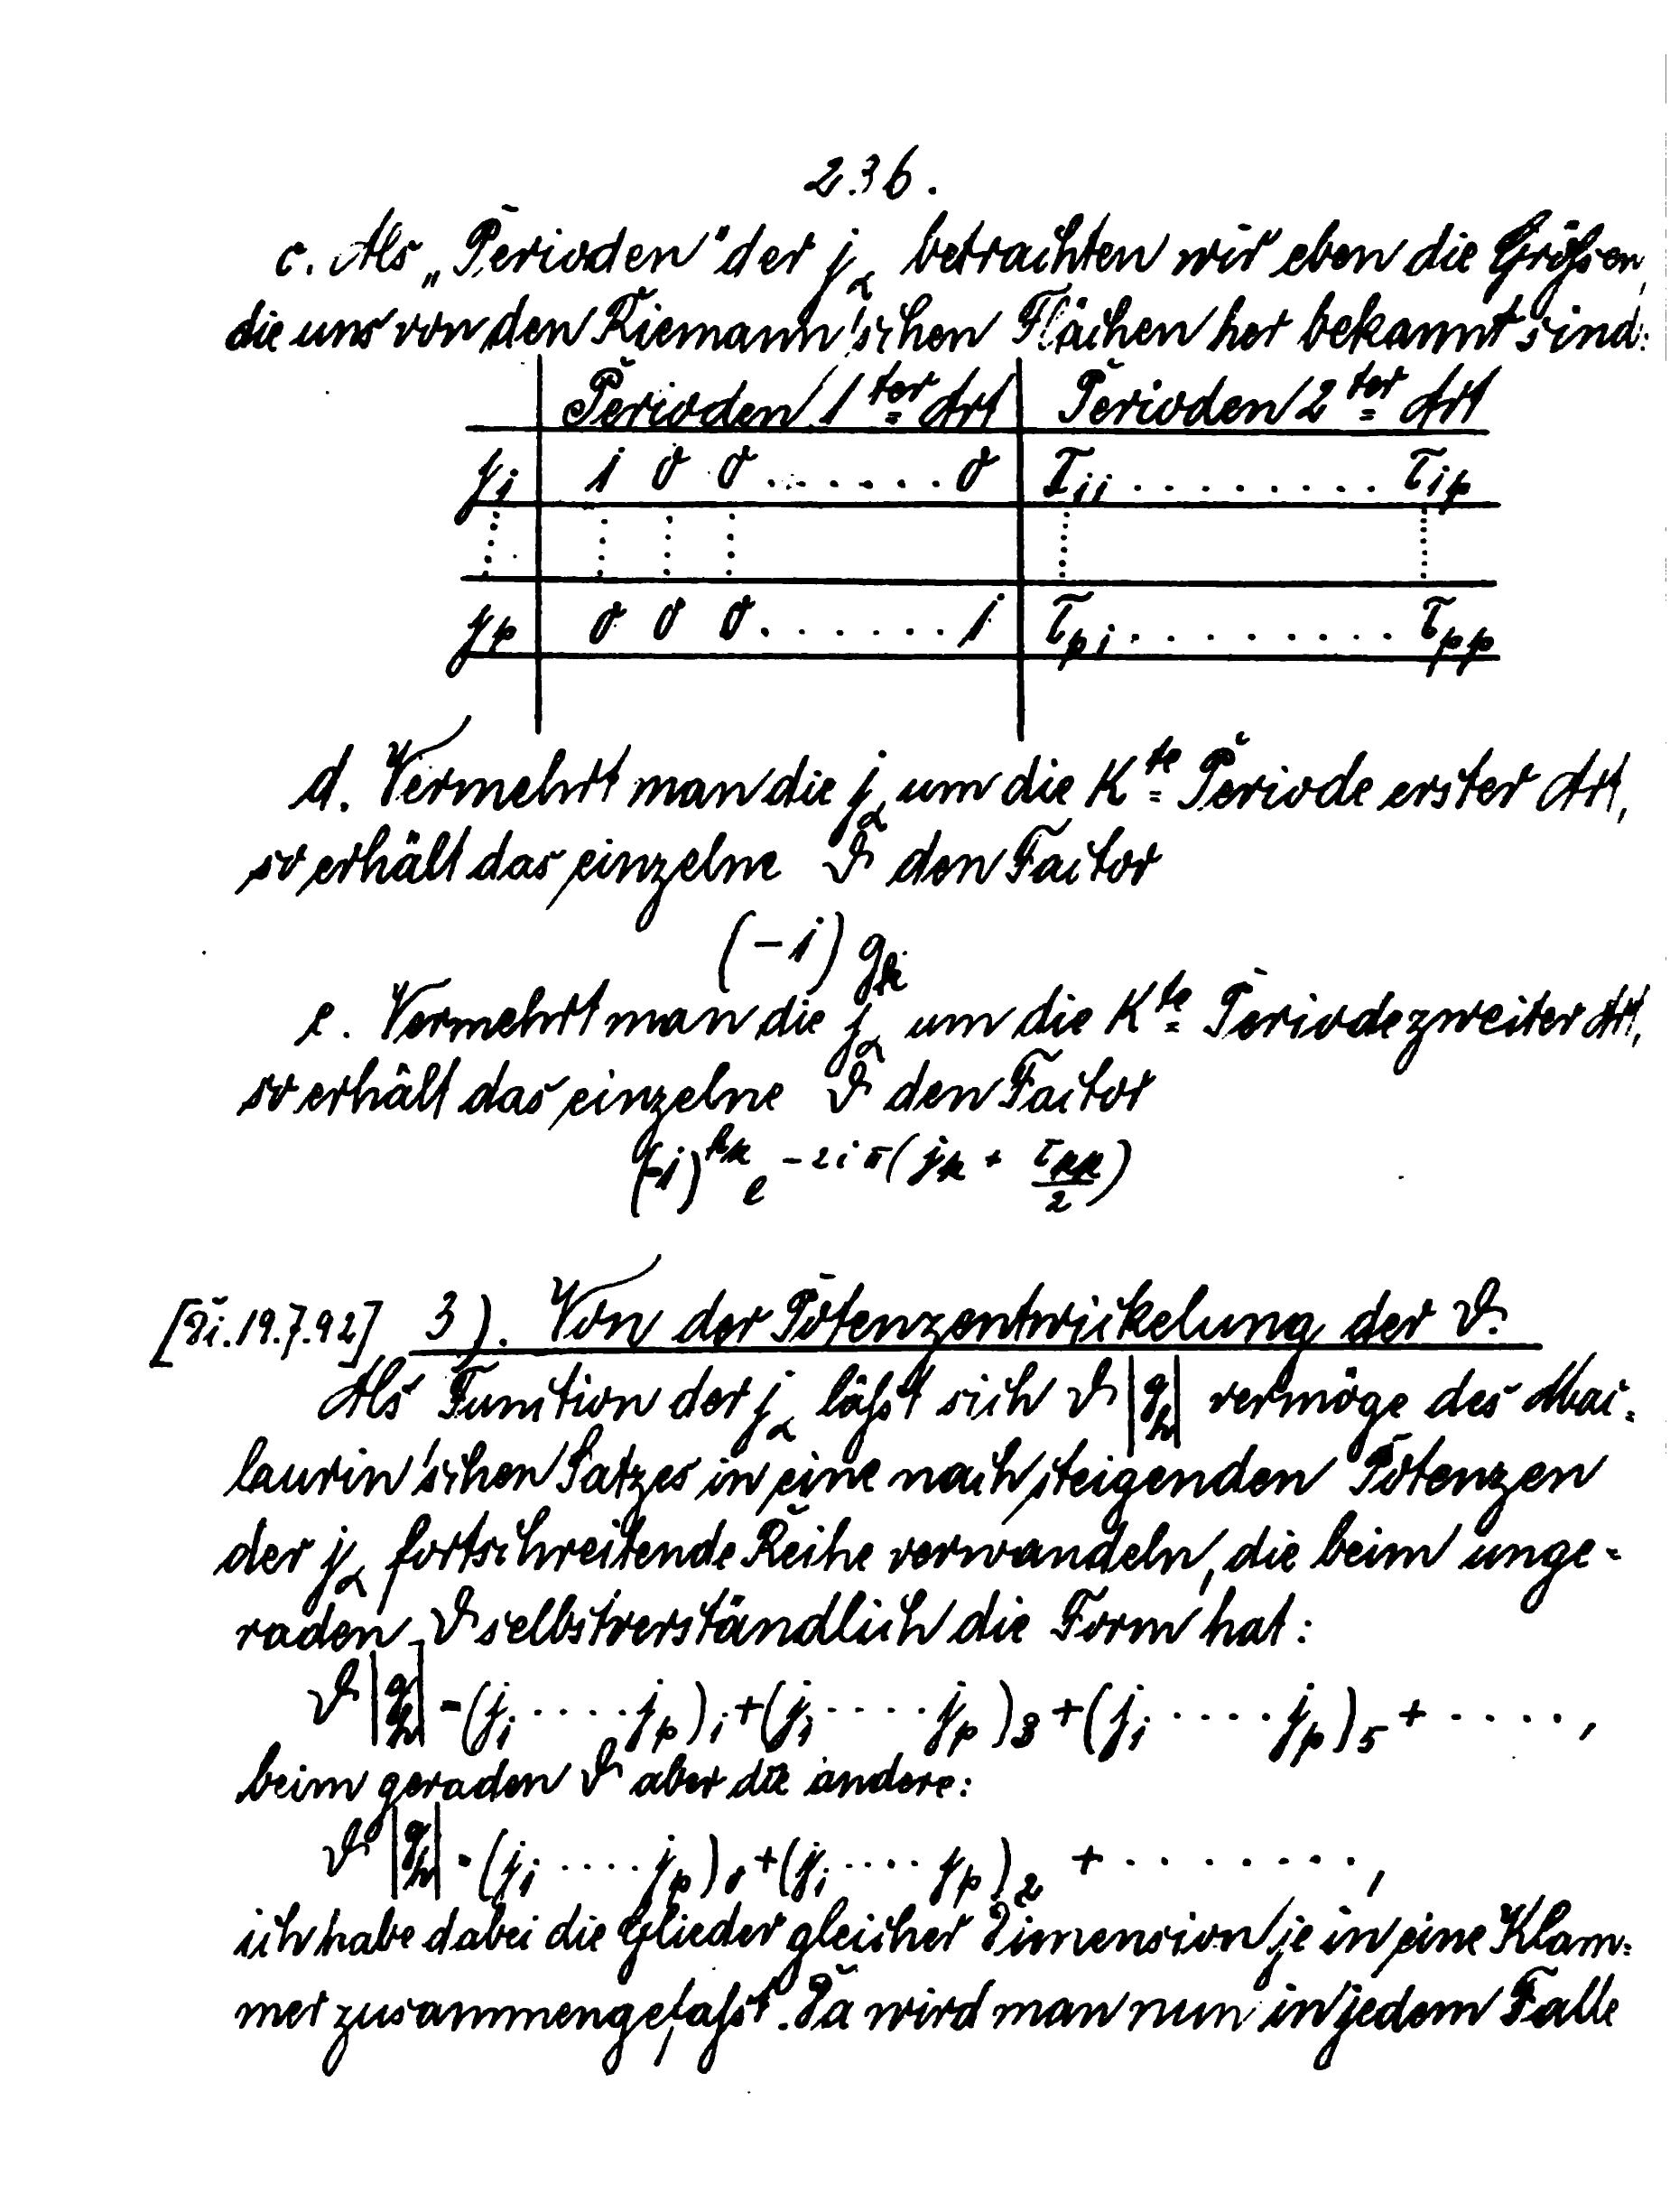 236.
c. Als „Perioden" der j_α betrachten wir eben die Größen,
die uns von den Riemann'schen Flächen her bekannt sind:
Perioden 1^ter Art | Perioden 2^ter Art
j_1 | 1 0 0 ....... 0 | τ_11 ......... τ_1p
⋮ | ⋮ ⋮ ⋮ | ⋮ ⋮
j_p | 0 0 0 ....... 1 | τ_p1 ......... τ_pp
d. Vermehrt man die j_α um die K^te Periode erster Art,
so erhält das einzelne ϑ den Factor
(-1) g_k
e. Vermehrt man die j_α um die K^te Periode zweiter Art,
so erhält das einzelne ϑ den Factor
(-1)^{h_k} e^{-2iπ(j_k + τ_kk/2)}
[Di. 19.7.92] 3). Von der Potenzentwickelung der ϑ.
Als Function der j_α läßt sich ϑ|g h| vermöge des Mac-
laurin'schen Satzes in eine nach steigenden Potenzen
der j_α fortschreitende Reihe verwandeln, die beim unge-
raden ϑ selbstverständlich die Form hat:
ϑ|g h| = (j_1 ..... j_p)_1 + (j_1 ..... j_p)_3 + (j_1 ..... j_p)_5 + .....,
beim geraden ϑ aber die andere:
ϑ|g h| = (j_1 ..... j_p)_0 + (j_1 ..... j_p)_2 + ........,
ich habe dabei die Glieder gleicher Dimension je in eine Klam-
mer zusammengefaßt. Da wird man nun in jedem Falle